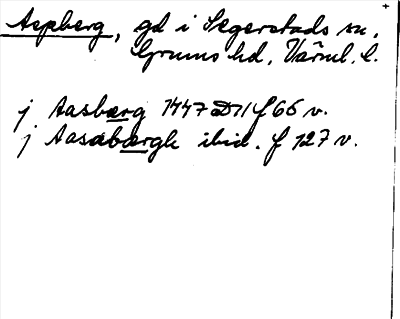 Aspberg, gd i Segerstads sn,
Grums hd, Värml. l.
j Aasbærg 1447 D 11 f 66 v.
j Aasabærgh ibid. f 127 v.